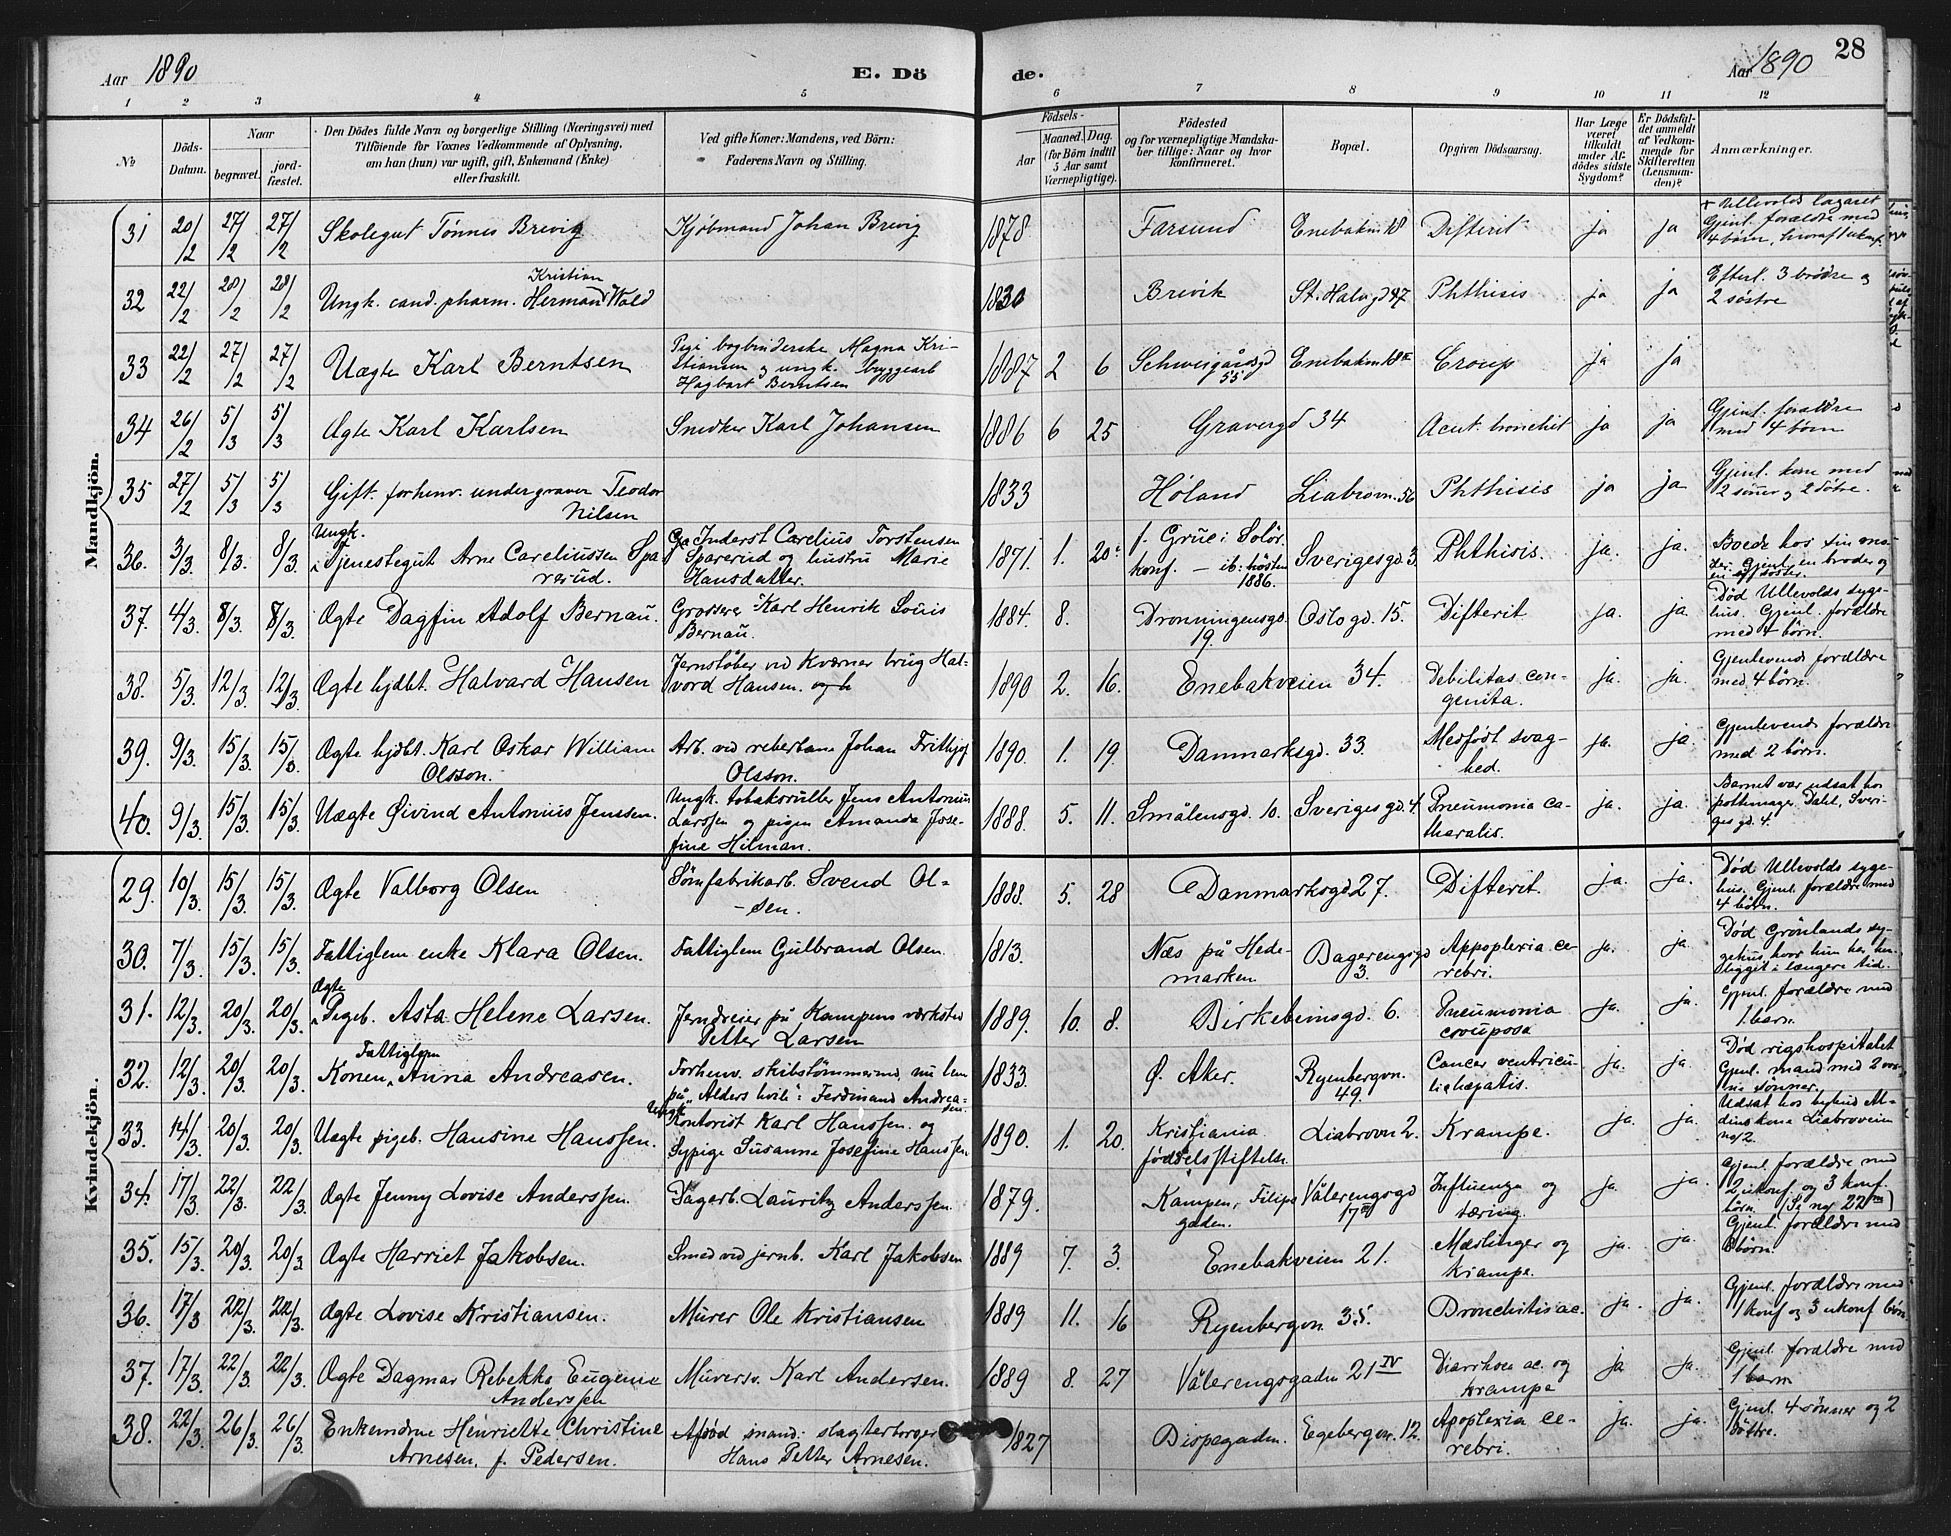 Aar 1890
E. Dö
de.
Aar 1890
28
1 2 3 4 5 6 7 8 9 10 11 12
No
Döds-
Datum.
Naar
begravet.
jord-
fæstet.
Den Dödes fulde Navn og borgerlige Stilling (Næringsvei) med
Tilföiende för Voxnes Vedkommende af Oplysning,
om han (hun) var ugift, gift, Enkemand (Enke)
eller fraskilt.
Ved gifte Koner: Mandens, ved Börn:
Faderens Navn og Stilling.
Födsels-
Aar
Maaned. Dag.
(for Börn indtil
5 Aar samt
Værnepligtige).
Födested
og for værnepligtige Mandska-
ber tillige: Naar og hvor
konfirmeret.
Bopæl.
Opgiven Dödsaarsag.
Har Læge
været
tilkaldt
under Af-
dödes sidste
Sygdom?
Er Dödsfal-
det anmeldt
af Vedkom-
mende for
Skifteretten
(Lensman-
den)?
Anmærkninger.
Mandkjön.
31 20/2 27/2 27/2 Skolegut Tönnes Brevig Kjöbmand Johan Brevig 1878 Farsund Enebakvn 18 Difterit ja ja
+ Ullevolds lazaret
Gjenl. forældre med
4 børn, hvoraf
32 22/2 28/2 28/2 Ungk. cand. pharm. Herman Wold 1830 Brevik St. Halvgd 47 Phthisis ja ja
Kristian
Efterl. 3 brödre og
2 söstre
33 22/2 27/2 27/2 Uægte Karl Berntsen 1887 2 6 Schweigårdsgd
55 Enebakvn 18 III Croup ja ja
Pigi bogbinderske Magna Kri-
stiansen og ungk. bryggearb
Hagbart Berntsen
34 26/2 5/3 5/3 Ægte Karl Karlsen Snedker Karl Johansen 1886 6 25 Gravergd 34 Acut. bronchit ja ja
Gjenl. forældre
med 4 børn
35 27/2 5/3 5/3 Gift. forhenv. undergraver Teodor
Nilsen 1833 Höland Liabrovn. 56 Phthisis ja ja
Gjenl. kone med
2 sönner og 2 dötre.
36. 3/3 8/3. 8/3. Ungk.
Tjenestegut Arne Careliussen Spa
rerud.
Inderst Carelius Torstensen
Sparerud og hustru Marie
Hansdatter.
1871. 1. 20. f. Grue i Solör.
konf. — ib: hösten
1886. Sverigesgd. 3. Phthisis. ja. ja.
Boede hos sin
Gjenl. en broder og
en söster.
37. 4/3. 8/3. 8/3. Ægte Dagfin Adolf Bernau. Grosserer Karl Henrik Louis
Bernau. 1884. 8. Dronningensgd.
19. Oslogd. 15. Difterit ja. ja.
Død Ullevolds syge-
hus. Gjenl. forældre
med 4 børn.
38. 5/3. 12/3. 12/3. Ægte hjdbt. Halvard Hansen Jernstöber ved Kværner brug Hal-
vord Hansen. og h 1890 2. 16. Enebakveien 34. Debilitas con-
genita. ja. ja.
Gjenlevende forældre
med 4 børn.
39. 9/3. 15/3. 15/3. Ægte hjdbt. Karl Oskar William
Olsson. Arb. ved reberbane Johan Frithjof
Olsson. 1890. 1. 19. Danmarksgd. 33. Medfödt svag-
hed. ja. ja
Gjenlevende forældre
med 2 børn.
40. 9/3. 15/3. 15/3. Uægte Øivind Antonius Jenssen. Ungk. tobaksruller Jens Antonius
Larssen og pigen Amanda Jose-
fine Hilman. 1888. 5. 11. Smålensgd. 10. Sverigesgd. 4. Pneumonia ca-
tharalis. ja. ja.
Barnet var udsat hos
pottemager Dahl, Sveri-
gesgd. 4.
Kvindekjön.
29. 10/3. 15/3. 15/3. Ægte Valborg Olsen Sömfabrikarb. Svend Ol-
— sen. 1888. 5. 28 Danmarksgd 27. Difterit. ja. ja.
Død Ullevolds syge-
hus. Gjenl. forældre med
4 børn.
30. 7/3. 15/3. 15/3. Fattiglem enke Klara Olsen. Fattiglem Gulbrand Olsen. 1813. Næs på Hede-
marken Dagerengsgd
3. Appoplexia ce-
rebri. ja. ja.
Død Grönlands sy-
gehus, hvor hun har hen-
ligget i længere tid.
31. 12/3. 20/3. 20/3. Ægte
Pigeb. Asta Helene Larsen. Jerndreier på Kampens værksted
Petter Larsen 1889. 10. 8. Birkebeinsgd. 6. Pneumonia
crouposa ja. ja.
Gjenl. forældre med
1 barn.
32. 12/3. 20/3. 20/3. Fattiglem
Konen Anna Andreasen. Forhenv. skibstömmermd, nu lem
på "Alders hvile": Ferdinand Andrea-
sen. 1833. Ø. Aker. Ryenbergvn.
49. Cancer ventricu-
li & hepatis. ja. ja.
Død rigshospitalet
Gjenl. mand med 2 vox-
ne sönner.
33. 14/3. 20/3. 20/3. Uægte pigeb. Hansine Hanssen. Ungk.
Kontorist Karl Hanssen. og
Sypige Susanne Josefine Hanssen 1890. 1. 20. Kristiania
födselsstiftelse. Liabrovn 2. Krampe. ja. ja.
Udsat hos
Liabroveien
no 2.
34. 17/3. 22/3. 22/3. Ægte Jenny Lovise Anderssen. Dagarb. Lauritz Anderssen. 1879. Kampen, Filips
gaden. Vålerengsgd
17 III Influenza og
tæring. ja. ja.
Gjenl. forældre med
2 ukonf. og 3 konf.
børn. (Se no 22)
35. 15/3. 20/3. 20/3. Ægte Harriet Jakobsen. Smed ved jernb. Karl Jakobsen 1889 7. 3. Enebakveien 21. Mæslinger og
krampe. ja. ja.
Gjenl. forældre med
børn.
36. 17/3 22/3. 22/3. Ægte Lovise Kristiansen. Murer Ole Kristiansen 1889 11. 16 Ryenbergvn 35. Bronchitis ac. ja. ja.
Gjenl. forældre med
1 konf og 3 ukonf børn.
37. 17/3. 22/3. 22/3. Ægte Dagmar Rebekka Eugenie
Anderssen Murersv. Karl Andersen. 1889 8. 27 Vålerengsgaden 21 IV Diarrhoea ac. og
krampe ja ja.
Gjenl. forældre med
1 barn
38. 22/3. 26/3. 26/3. Enkemadme Henriette Christine
Arnesen, f. Pedersen. Afdöd mand: slagterborger
Hans Petter Arnesen. 1827 Bispegaden. Egebergvn. 12. Apoplexia ce-
rebri. ja. ja.
Gjenl. 4 sönner og 2
döttre.